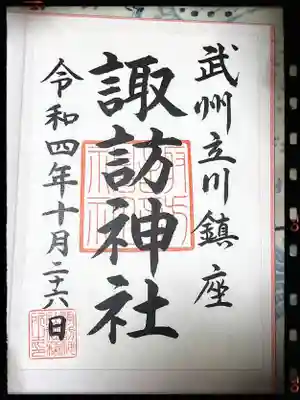 武州立川鎮座
諏訪神社
令和四年十月二十六日